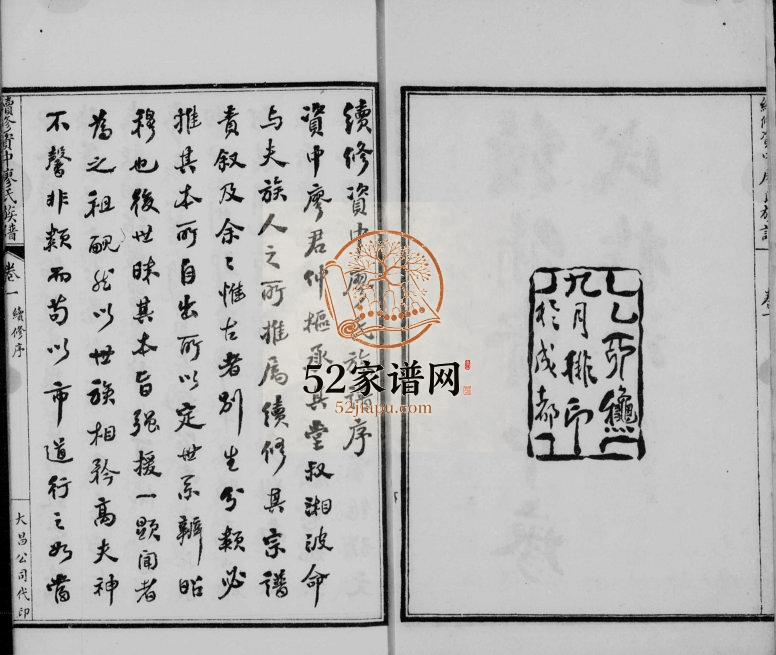 乙卯龝
九月排印
於成都
續修資中廖氏族譜序
資中廖君仲樞承其堂叔湘波命
与夫族人之所推属續修其宗譜
责叙及余〻惟古者别生分類必
推其本所自出所以定世系辨昭
穆也後世昧其本旨强援一顯闻者
為之祖醜然以世族相矜高夫神
不馨非類而苟以市道行之如當
續修資中廖氏族譜
卷一
續修序
大昌公司代印
52家谱网
52jiapu.com